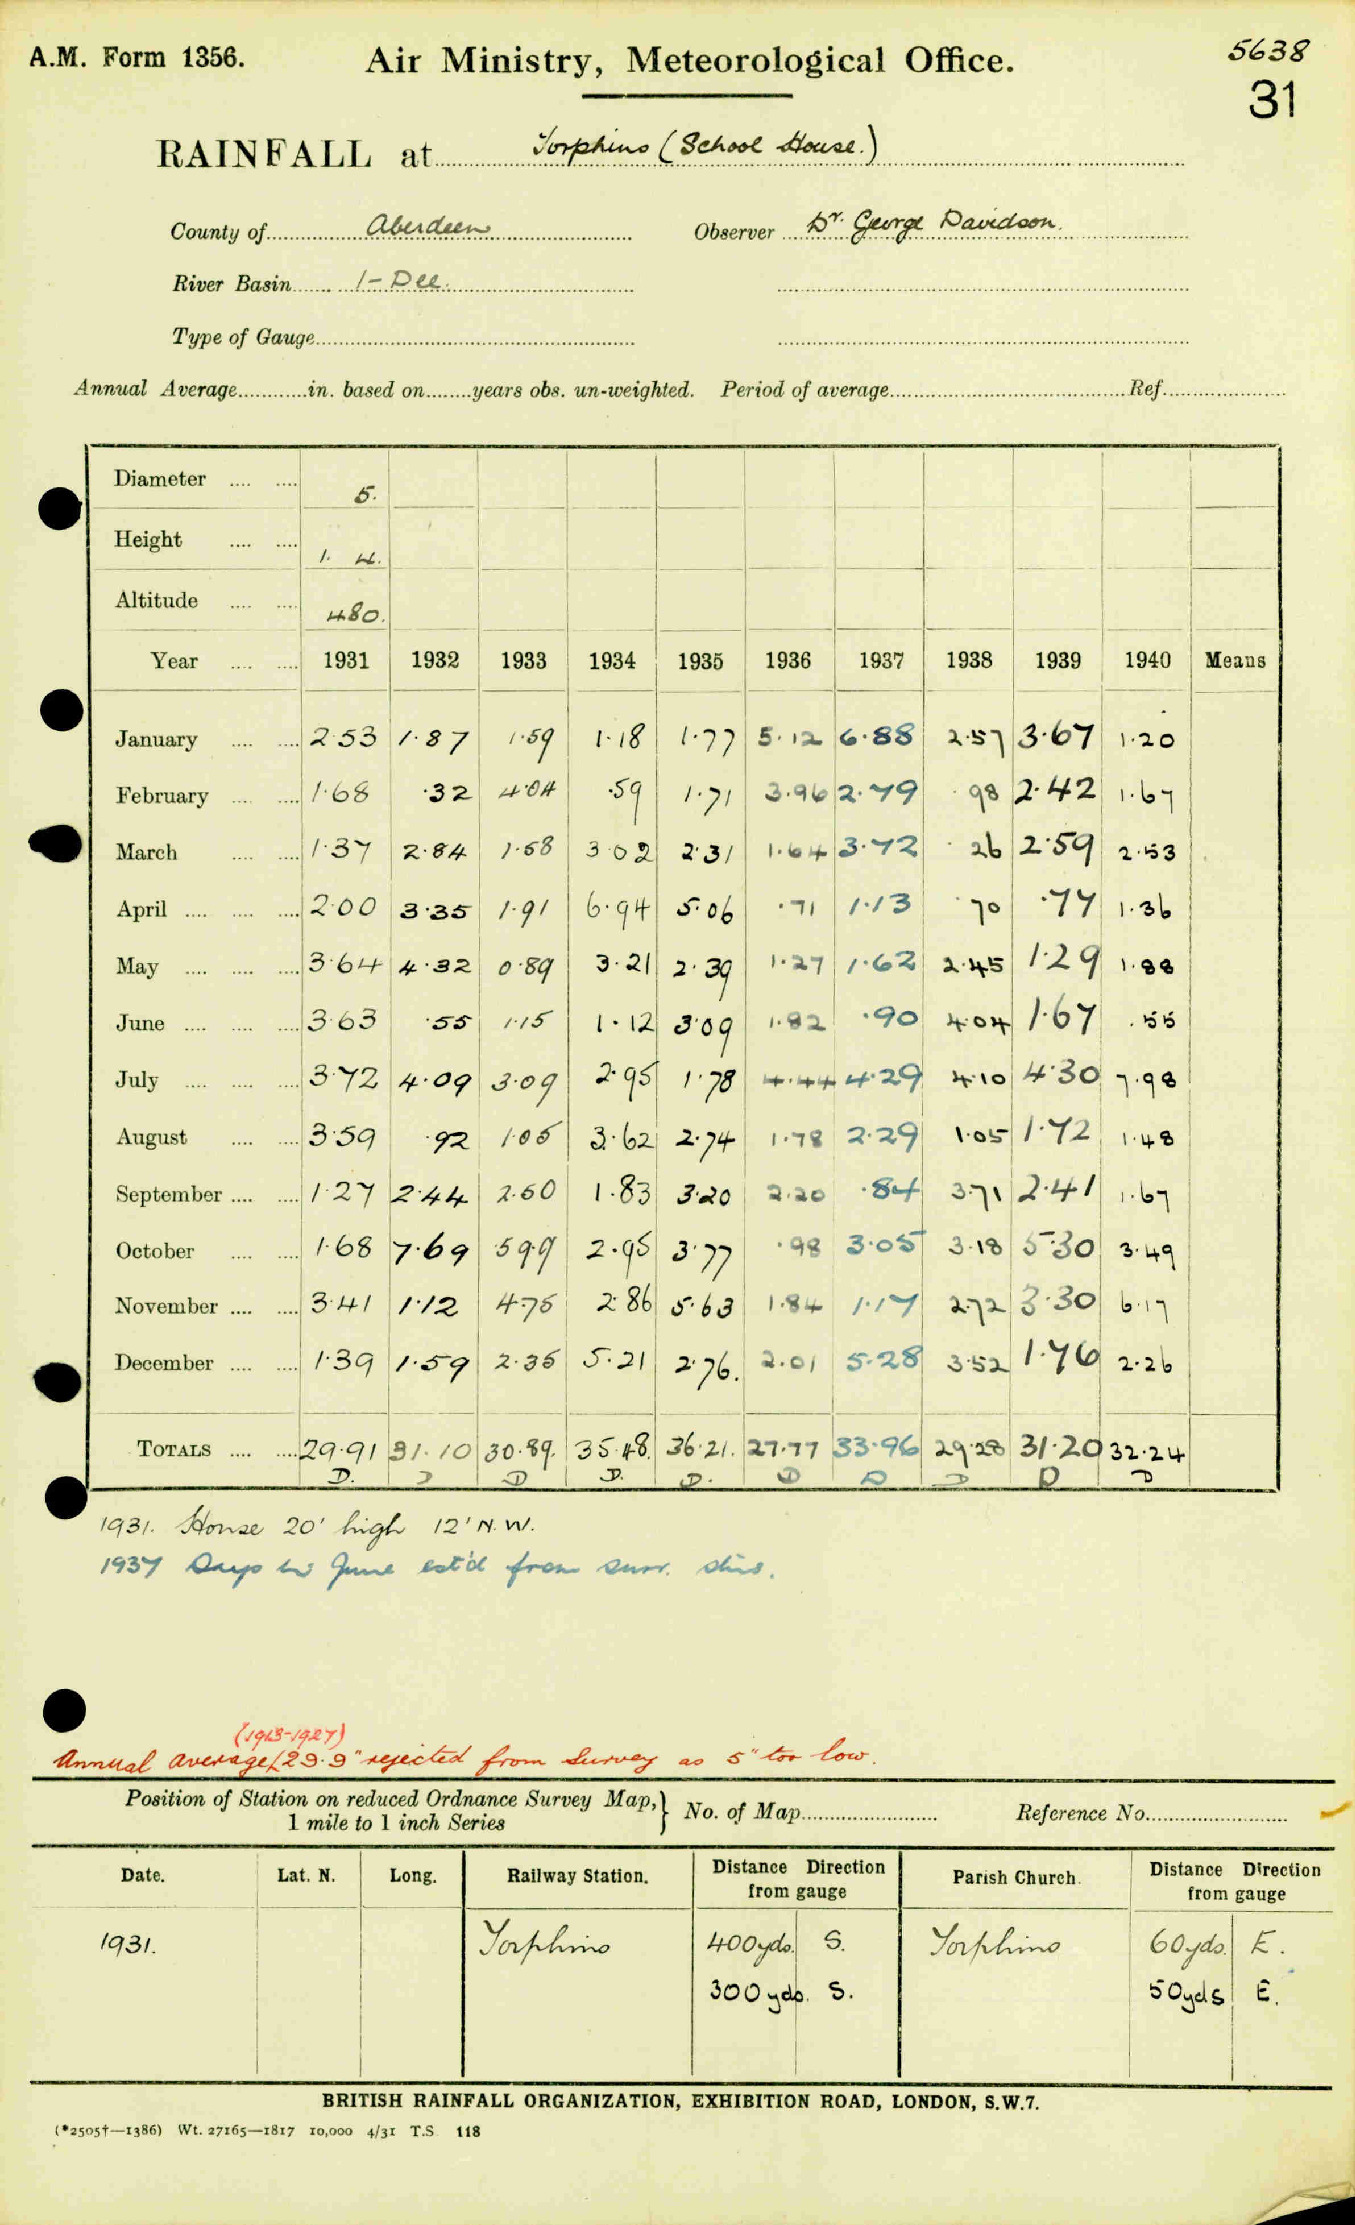 A.M. Form 1356.
Air Ministry, Meteorological Office.
5638
31
RAINFALL at Torphins (School House.)
County of Aberdeen Observer Dr. George Davidson.
River Basin 1 - Dee.
Type of Gauge
Annual Average in. based on years obs. un-weighted. Period of average Ref.
Diameter 5.
Height 1. 4.
Altitude 480.
Year 1931 1932 1933 1934 1935 1936 1937 1938 1939 1940 Means
January 2·53 1·87 1·59 1·18 1·77 5·12 6·88 2·57 3·67 1·20
February 1·68 ·32 4·04 ·59 1·71 3·96 2·79 ·98 2·42 1·67
March 1·37 2·84 1·58 3·02 2·31 1·64 3·72 ·26 2·59 2·53
April 2·00 3·35 1·91 6·94 5·06 ·71 1·13 ·70 ·77 1·36
May 3·64 4·32 0·89 3·21 2·39 1·27 1·62 2·45 1·29 1·88
June 3·63 ·55 1·15 1·12 3·09 1·82 ·90 4·04 1·67 ·55
July 3·72 4·09 3·09 2·95 1·78 4·44 4·29 4·10 4·30 7·98
August 3·59 ·92 1·05 3·62 2·74 1·78 2·29 1·05 1·72 1·48
September 1·27 2·44 2·50 1·83 3·20 2·20 ·84 3·71 2·41 1·67
October 1·68 7·69 5·99 2·95 3·77 ·98 3·05 3·18 5·30 3·49
November 3·41 1·12 4·75 2·86 5·63 1·84 1·17 2·72 3·30 6·17
December 1·39 1·59 2·35 5·21 2·76. 2·01 5·28 3·52 1·76 2·26
TOTALS 29·91 31·10 30·89. 35·48. 36·21. 27·77 33·96 29·28 31·20 32·24
D. D D D. D. D D D D D
1931. House 20' high 12' N.W.
1937 Days in June est'd from surr. stns.
(1913-1927)
Annual average 29·9" rejected from Survey as 5" too low.
Position of Station on reduced Ordnance Survey Map,} No. of Map Reference No.
1 mile to 1 inch Series
Date. Lat. N. Long. Railway Station. Distance Direction from gauge Parish Church. Distance Direction from gauge
1931. Torphins 400yds. S. Torphins 60yds. E.
300yds. S. 50yds E.
BRITISH RAINFALL ORGANIZATION, EXHIBITION ROAD, LONDON, S.W.7.
(*2505†—1386) Wt. 27165—1817 10,000 4/31 T.S. 118